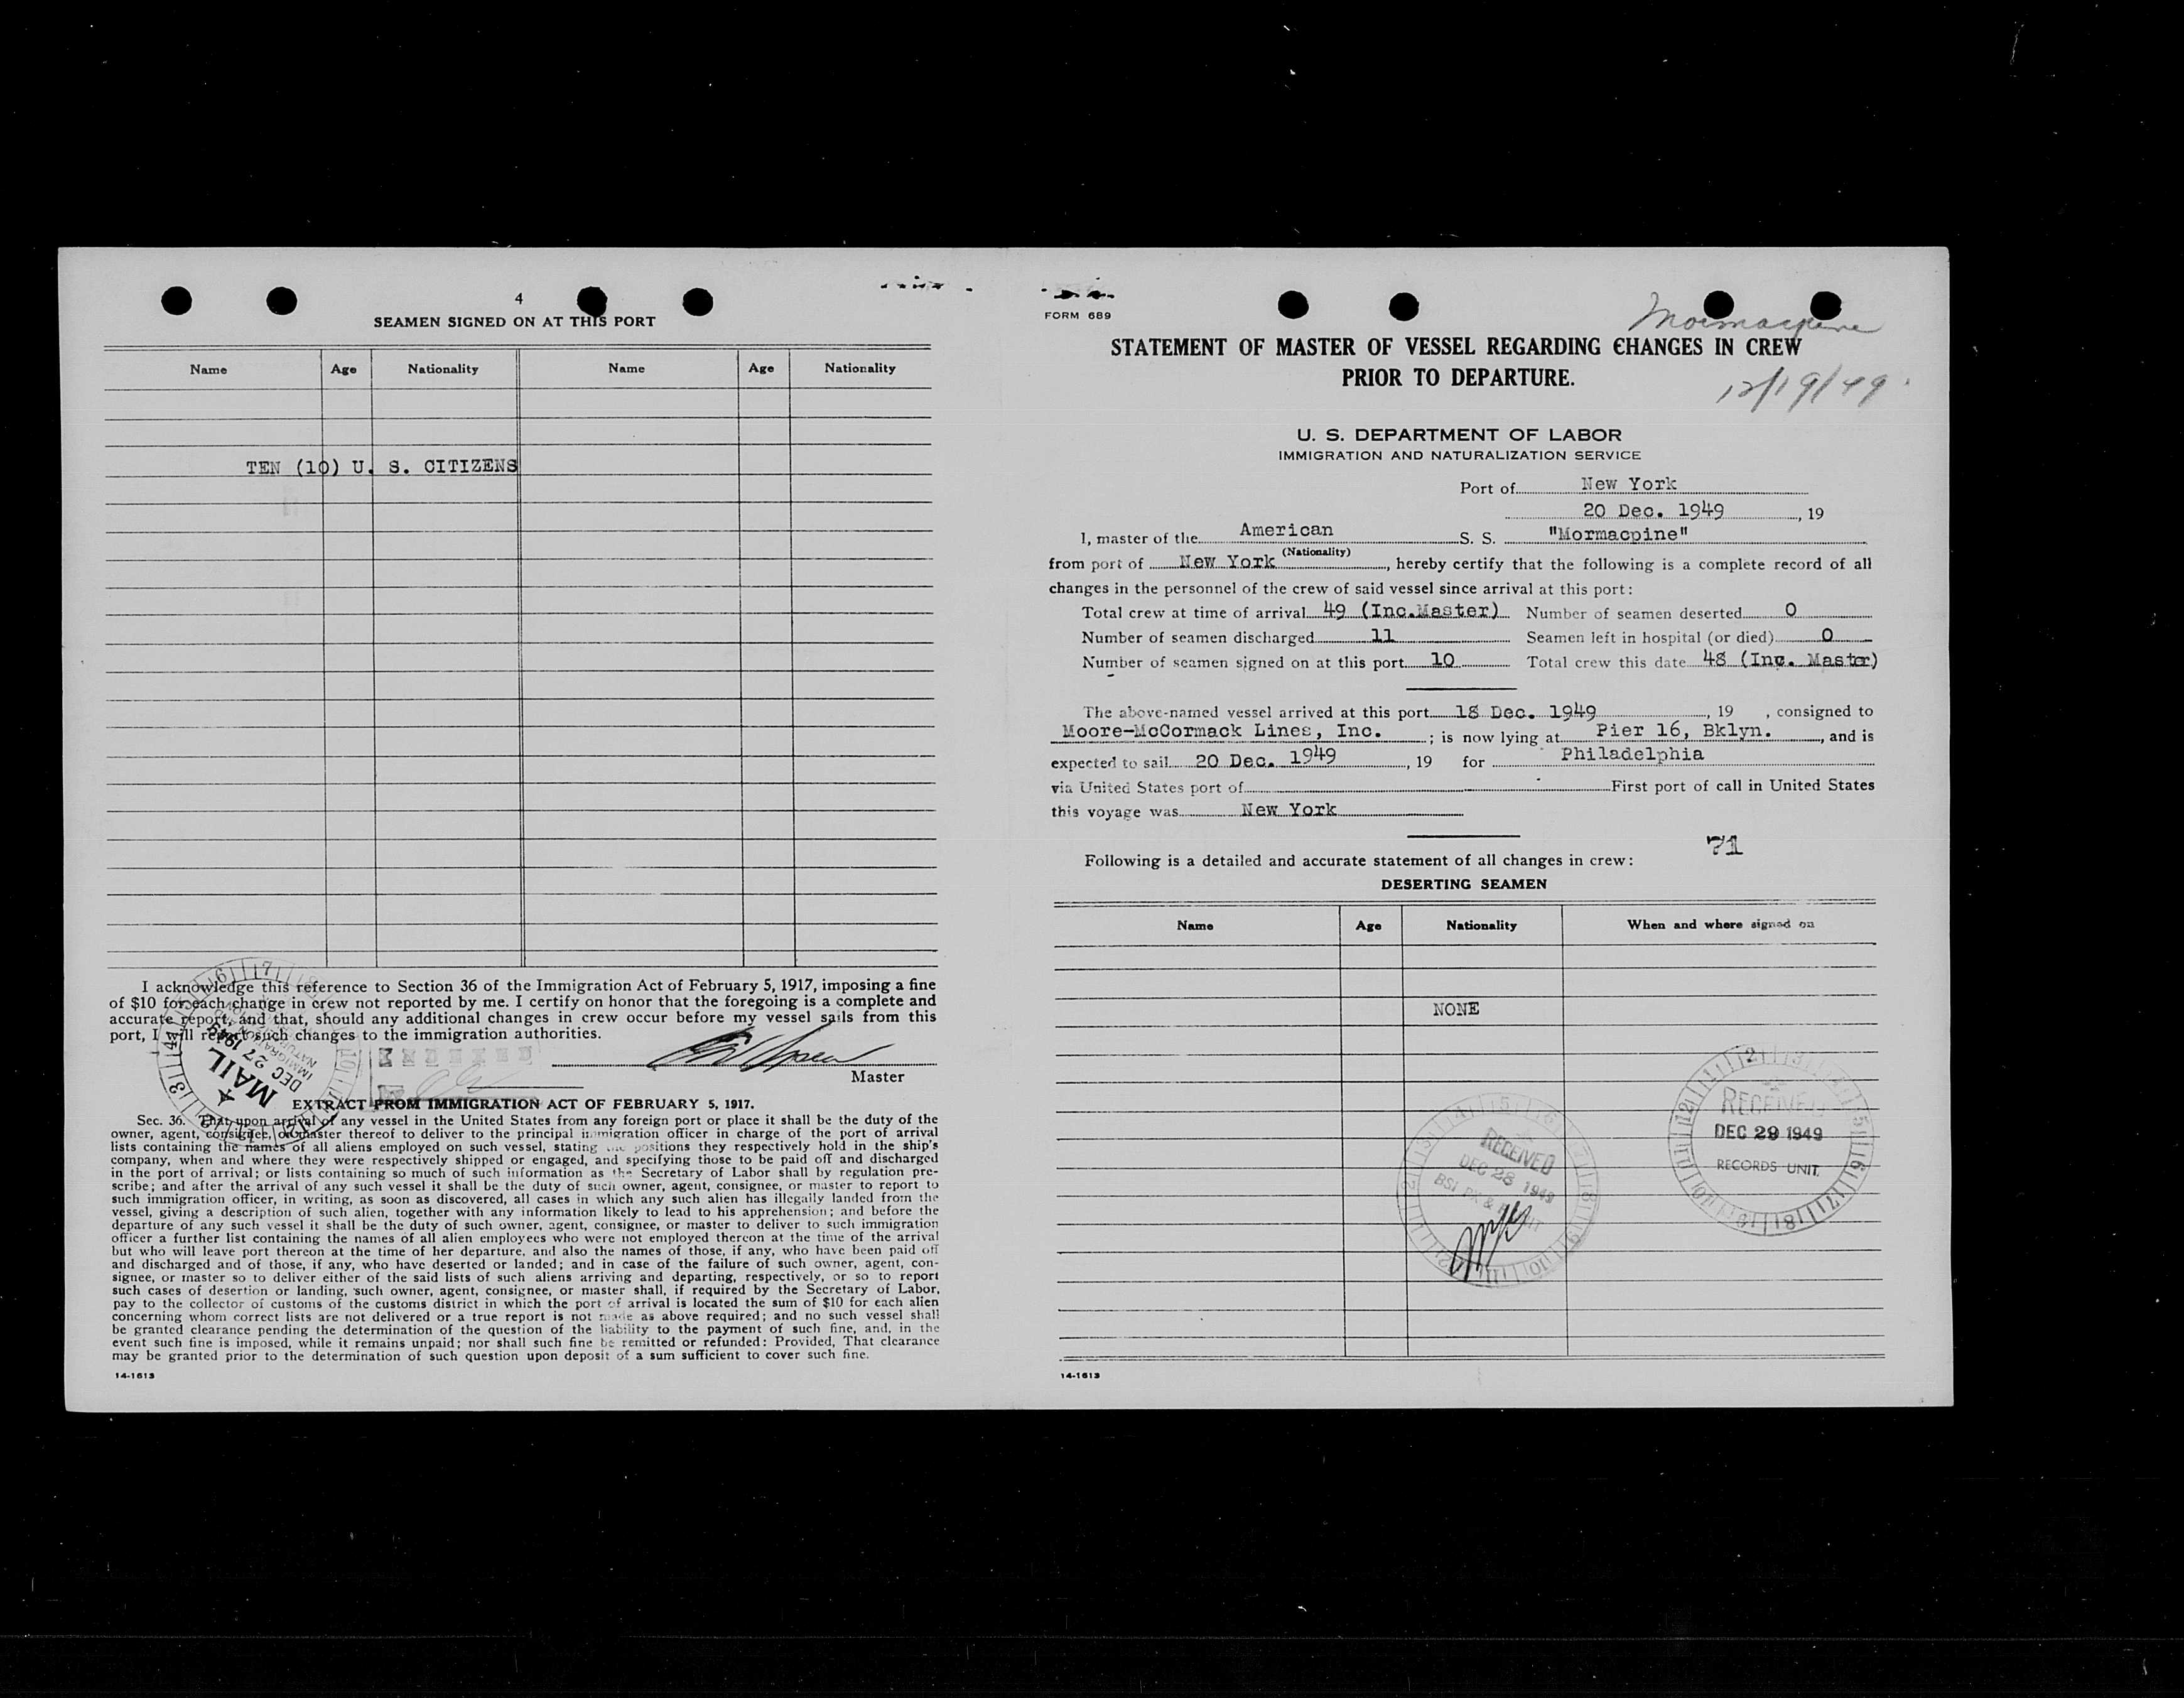 4
SEAMEN SIGNED ON AT THIS PORT
Name Age Nationality Name Age Nationality
TEN (10) U. S. CITIZENS
I acknowledge this reference to Section 36 of the Immigration Act of February 5, 1917, imposing a fine
of $10 for each change in crew not reported by me. I certify on honor that the foregoing is a complete and
accurate report, and that, should any additional changes in crew occur before my vessel sails from this
port, I will report such changes to the immigration authorities.
MAIL
DEC 27 1949
IMMIGRATION
INDEXED
Master
EXTRACT FROM IMMIGRATION ACT OF FEBRUARY 5, 1917.
Sec. 36. That upon arrival of any vessel in the United States from any foreign port or place it shall be the duty of the
owner, agent, consignee, or master thereof to deliver to the principal immigration officer in charge of the port of arrival
lists containing the names of all aliens employed on such vessel, stating the positions they respectively hold in the ship's
company, when and where they were respectively shipped or engaged, and specifying those to be paid off and discharged
in the port of arrival; or lists containing so much of such information as the Secretary of Labor shall by regulation pre-
scribe; and after the arrival of any such vessel it shall be the duty of such owner, agent, consignee, or master to report to
such immigration officer, in writing, as soon as discovered, all cases in which any such alien has illegally landed from the
vessel, giving a description of such alien, together with any information likely to lead to his apprehension; and before the
departure of any such vessel it shall be the duty of such owner, agent, consignee, or master to deliver to such immigration
officer a further list containing the names of all alien employees who were not employed thereon at the time of the arrival
but who will leave port thereon at the time of her departure, and also the names of those, if any, who have been paid off
and discharged and of those, if any, who have deserted or landed; and in case of the failure of such owner, agent, con-
signee, or master so to deliver either of the said lists of such aliens arriving and departing, respectively, or so to report
such cases of desertion or landing, such owner, agent, consignee, or master shall, if required by the Secretary of Labor,
pay to the collector of customs of the customs district in which the port of arrival is located the sum of $10 for each alien
concerning whom correct lists are not delivered or a true report is not made as above required; and no such vessel shall
be granted clearance pending the determination of the question of the liability to the payment of such fine, and, in the
event such fine is imposed, while it remains unpaid; nor shall such fine be remitted or refunded: Provided, That clearance
may be granted prior to the determination of such question upon deposit of a sum sufficient to cover such fine.
14-1613
FORM 689
Mormacpine
STATEMENT OF MASTER OF VESSEL REGARDING CHANGES IN CREW
PRIOR TO DEPARTURE.
12/19/49
U. S. DEPARTMENT OF LABOR
IMMIGRATION AND NATURALIZATION SERVICE
Port of New York
20 Dec. 1949, 19
I, master of the American S. S. "Mormacpine"
(Nationality)
from port of New York, hereby certify that the following is a complete record of all
changes in the personnel of the crew of said vessel since arrival at this port:
Total crew at time of arrival 49 (Inc.Master) Number of seamen deserted 0
Number of seamen discharged 11 Seamen left in hospital (or died) 0
Number of seamen signed on at this port 10 Total crew this date 48 (Inc. Master)
The above-named vessel arrived at this port 18 Dec. 1949, 19 , consigned to
Moore-McCormack Lines, Inc.; is now lying at Pier 16, Bklyn., and is
expected to sail 20 Dec. 1949, 19 for Philadelphia
via United States port of First port of call in United States
this voyage was New York
71
Following is a detailed and accurate statement of all changes in crew:
DESERTING SEAMEN
Name Age Nationality When and where signed on
NONE
RECEIVED
DEC 28 1949
RECEIVED
DEC 29 1949
RECORDS UNIT
14-1613